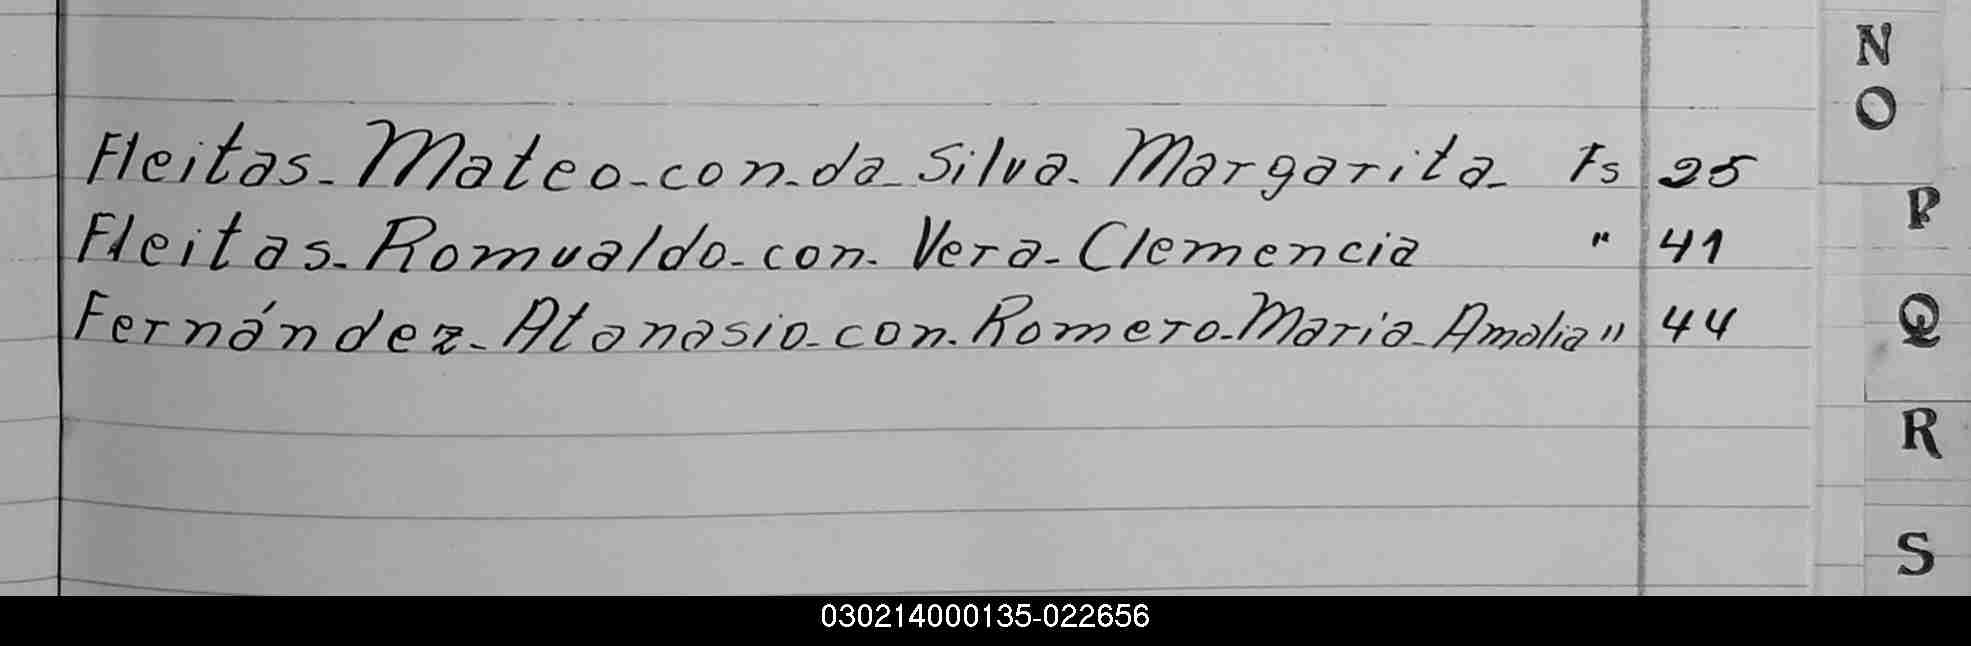 N
O
Fleitas-Mateo-con-da-Silva-Margarita- Fs 25
P
Fleitas-Romualdo-con-Vera-Clemencia " 41
Fernández-Atanasio-con-Romero-Maria-Amalia " 44
Q
R
S
030214000135-022656